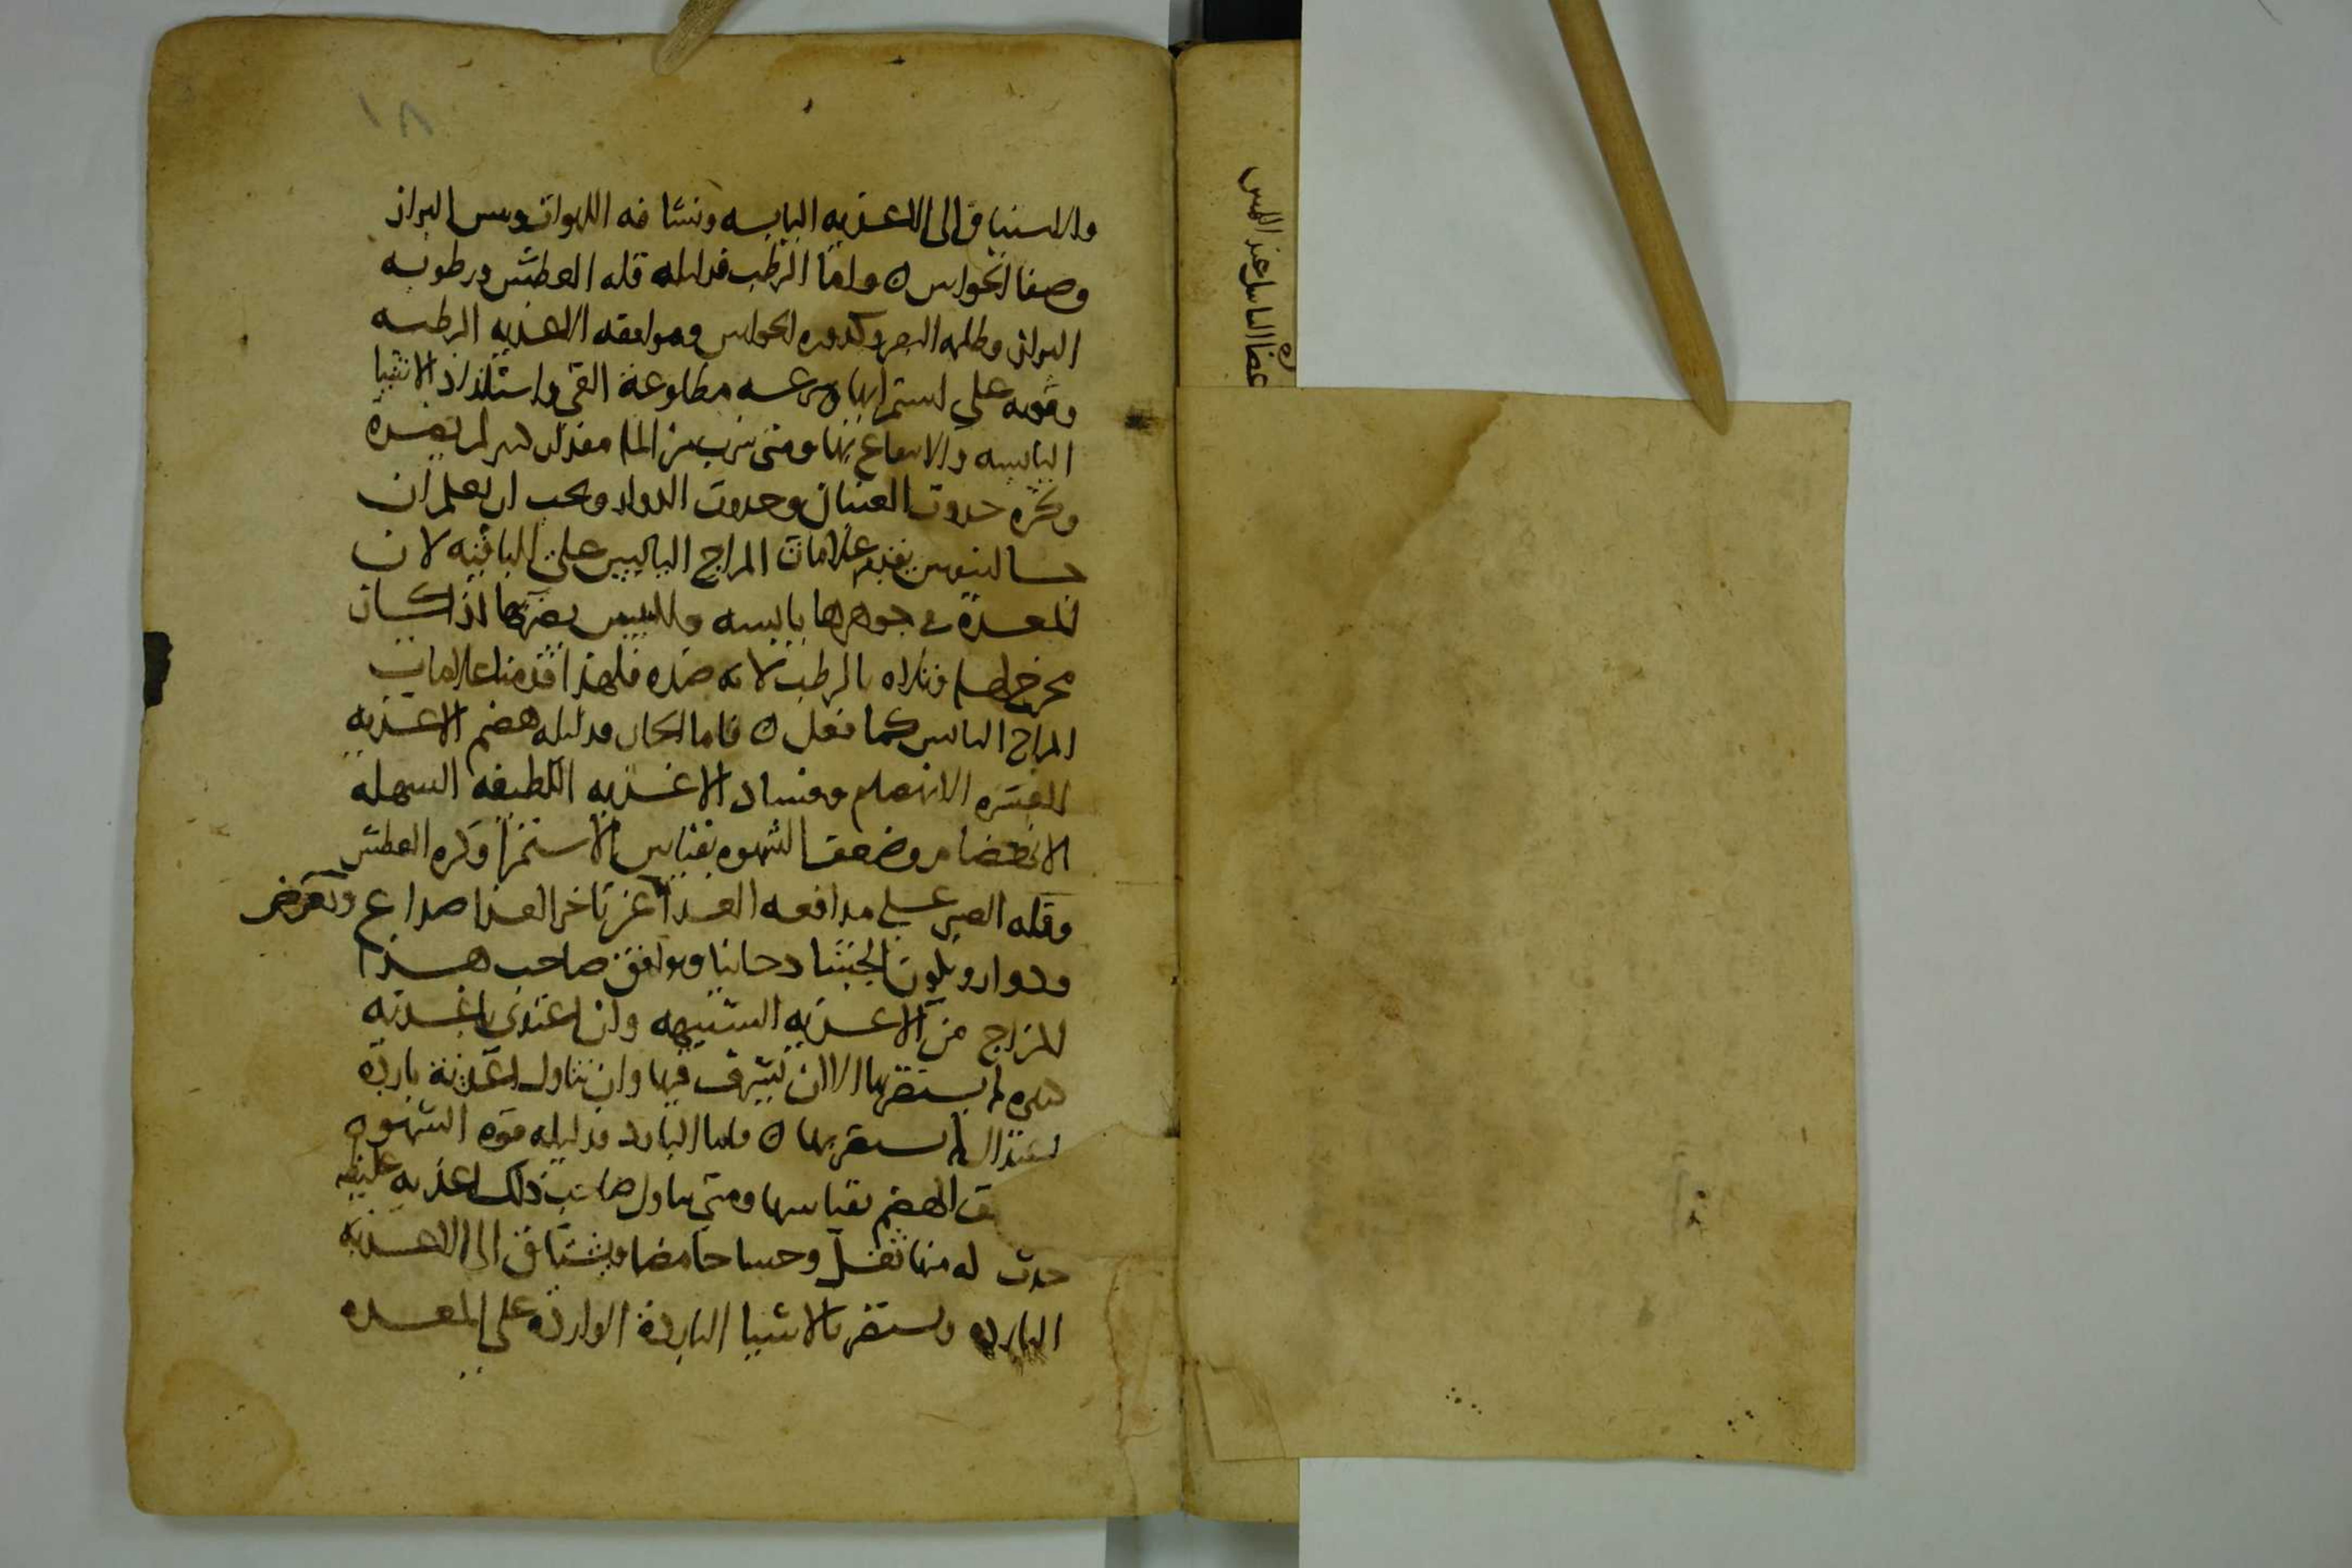 ١٨
والاستياق الى الاغذيه اليابسه ونشافه اللهوات ويبس البراز
وصفا الحواس ه واما الرطب فدليله قله العطش ورطوبه
البراز وظلمه البصر وكدوره الحواس وموافقه الاغذيه الرطبه
وقوته على استمرايها وسرعه مطاوعة القي واستلذاذ الاشيا
اليابسه والانتفاع بها ومتى شرب من الما مقدار لم يضره
وكثره حدوث الغثيان وحدوث الدوار ويجب ان يعلم ان
جالينوس يقدم علامات المزاج اليابس على الباقيه لان
المعده في جوهرها يابسه واليبس يضربها اذا كان
وتلاه بالرطب لانه ضده فلهذا قدمنا علامات
المزاج اليابس كما فعل ه فاما الحار فدليله هضم الاغذيه
العسره الانهضام وفساد الاغذيه اللطيفه السهله
الانهضام وضعف الشهوه بقياس الاستمرا وكثره العطش
وقله الصبر على مدافعه الغذا عن تاخر الغذا صداع وتعرض
ودوار ويكون الجشا دخانيا ويوافق صاحب هذا
المزاج من الاغذيه الشبيهه وان اغتذى باغذيه
لم يستضر بها الا ان يسرف فيها وان تناول اغذية باردة
باعتدال لم يستضر بها ه واما البارد فدليله قوه الشهوه
الهضم بقياسها ومتى تناول صاحب ذلك اغذيه غليظه
حدث له منها ثقل وجشا حامضا ويشتاق الى الاغذيه
البارده ويستضر بالاشيا الباردة الواردة على المعده